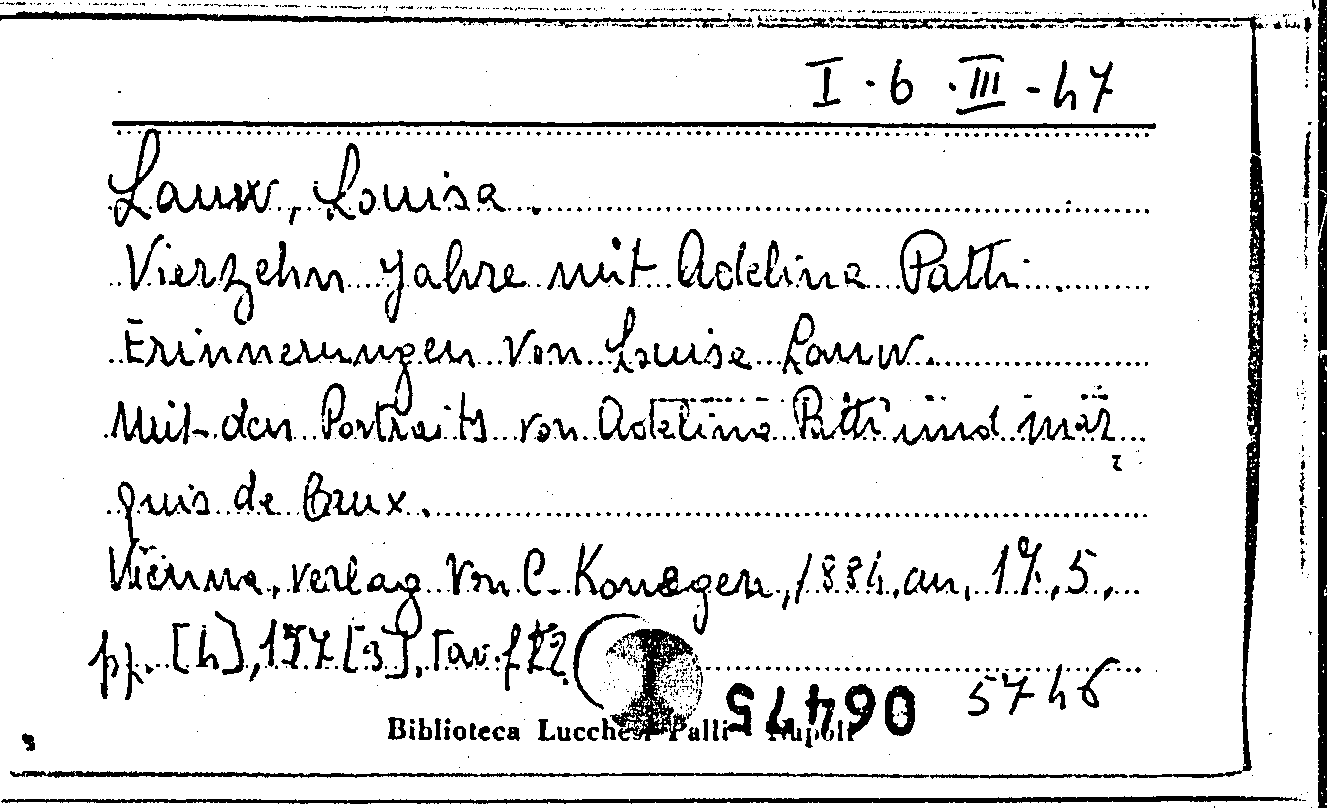 I·6·III-47
Lauw, Louisa.
Vierzehn Jahre mit Adelina Patti.
Erinnerungen von Louise Lauw.
Mit den Portraits von Adelina Patti und mar-
quis de Caux.
Vienna, Verlag von C. Konegen, 1884, cm. 17,5,
pp. [4], 157 [3], tav. f.t. 2.
06475 5746
Biblioteca Lucchesi Palli - Napoli